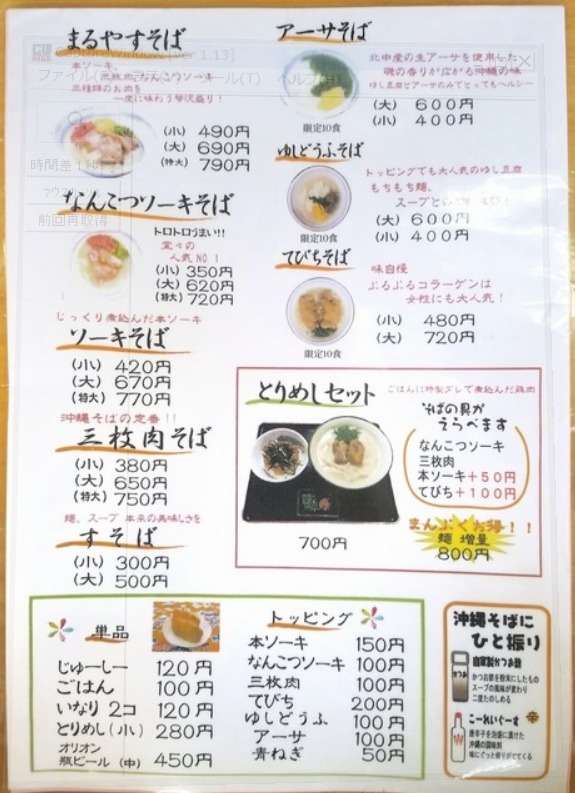 まるやすそば
本ソーキ、
三枚肉、なんこつソーキ
三種類のお肉を
一度に味わう贅沢盛り!
(小) 490円
(大) 690円
(特大) 790円
なんこつソーキそば
トロトロうまい!!
堂々の
人気NO1
(小) 350円
(大) 620円
(特大) 720円
じっくり煮込んだ本ソーキ
ソーキそば
(小) 420円
(大) 670円
(特大) 770円
沖縄そばの定番!!
三枚肉そば
(小) 380円
(大) 650円
(特大) 750円
麺、スープ 本来の美味しさを
すそば
(小) 300円
(大) 500円
アーサそば
北中産の生アーサを使用した
磯の香りが広がる沖縄の味
ゆし豆腐とアーサのみでとってもヘルシー
(大) 600円
(小) 400円
限定10食
ゆしどうふそば
トッピングでも大人気のゆし豆腐
もちもち麺、
スープと
(大) 600円
(小) 400円
限定10食
てびちそば
味自慢
ぷるぷるコラーゲンは
女性にも大人気!
(小) 480円
(大) 720円
限定10食
とりめしセット
ごはんに特製ダレで煮込んだ鶏肉
そばの具が
えらべます
なんこつソーキ
三枚肉
本ソーキ+50円
てびち+100円
700円
まんぷくお得!!
麺 増量
800円
単品
じゅーしー 120円
ごはん 100円
いなり 2コ 120円
とりめし(小) 280円
オリオン
瓶ビール (中) 450円
トッピング
本ソーキ 150円
なんこつソーキ 100円
三枚肉 100円
てびち 200円
ゆしどうふ 100円
アーサ 100円
青ねぎ 50円
沖縄そばに
ひと振り
自家製かつお粉
かつお節を粉末にしたもの
スープの風味が変わり
二度たのしめる
こーれーぐーす
唐辛子を泡盛に漬けた
沖縄の調味料
味にぐっと締りがでてくる
Window [ver 1.13]
ヘルプ(H)
前回再取得